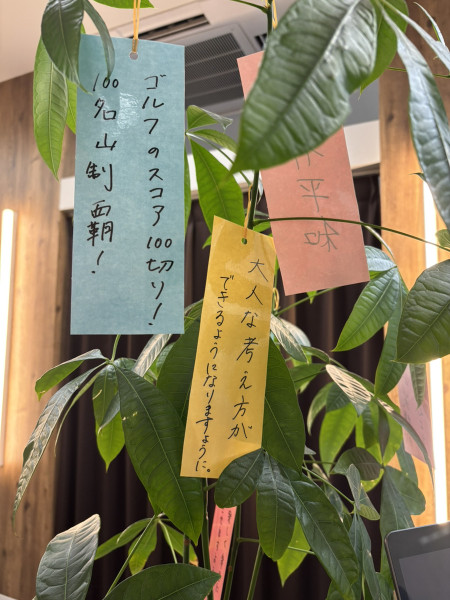 ゴルフのスコア 100切り!
100名山制覇!
大人な考え方が
できるようになりますように。
平和